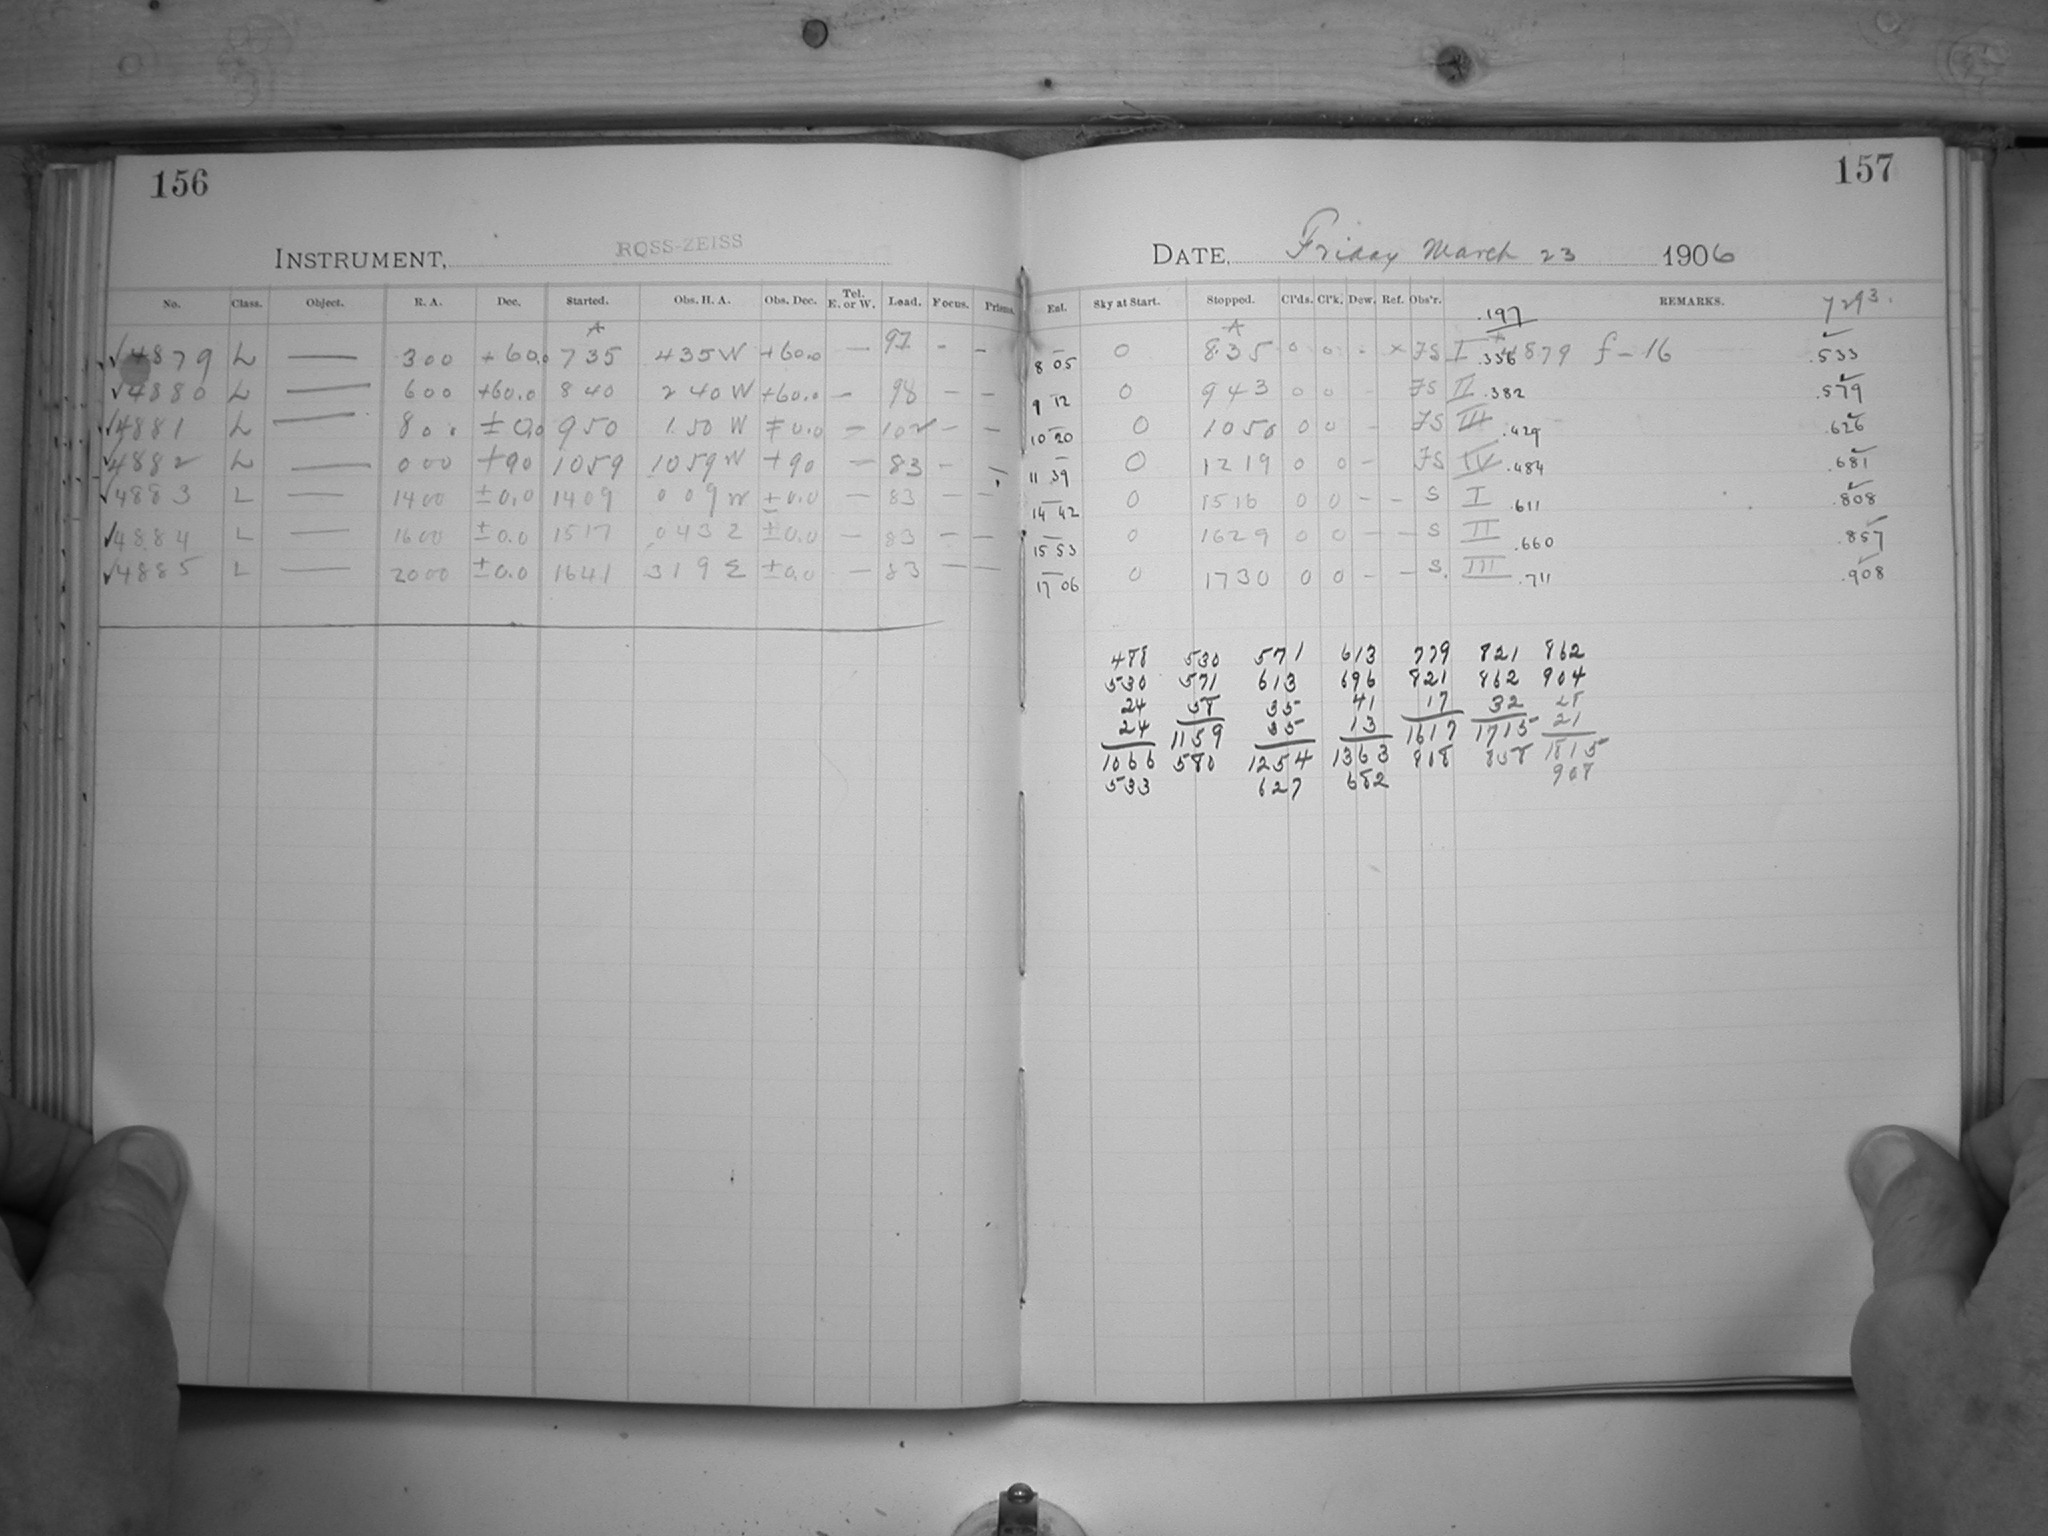 156
INSTRUMENT, ROSS-ZEISS
No. Class. Object. R. A. Dec. Started. Obs. H. A. Obs. Dec. Tel. E. or W. Load. Focus. Prisms.
A
√4879 L — 300 +60.0 735 435W +60.0 — 97 - -
√4880 L — 600 +60.0 840 240W +60.0 — 98 — —
√4881 L — 80. ±0.0 950 1.50 W ∓0.0 — 102 — —
√4882 L — 000 +90 1059 1059W +90 — 83 — —
√4883 L — 1400 ±0.0 1409 009W ±0.0 — 83 — —
√4884 L — 1600 ±0.0 1517 043E ±0.0 — 83 — —
√4885 L — 2000 ±0.0 1641 319E ±0.0 — 83 — —
157
DATE, Friday March 23 1906
Ext. Sky at Start. Stopped. Cl'ds. Cl'k. Dew. Ref. Obs'r. REMARKS. 7293.
A .197
8 05 0 8.35 0 0 - × FS I .336 4879 f-16 .533
9 12 0 943 0 0 - FS II .382 .579
10 20 0 1050 0 0 - FS III .429 .626
11 39 0 1219 0 0 - FS IV .484 .681
14 42 0 1516 0 0 - - S I .611 .808
15 53 0 1629 0 0 - - S II .660 .857
17 06 0 1730 0 0 - - S. III .711 .908
488 530 571 613 779 821 862
530 571 613 696 821 862 904
24 58 35 41 17 32 28
24 1159 35 13 1617 1715 21
1066 580 1254 1363 808 858 1815
533 627 682 908